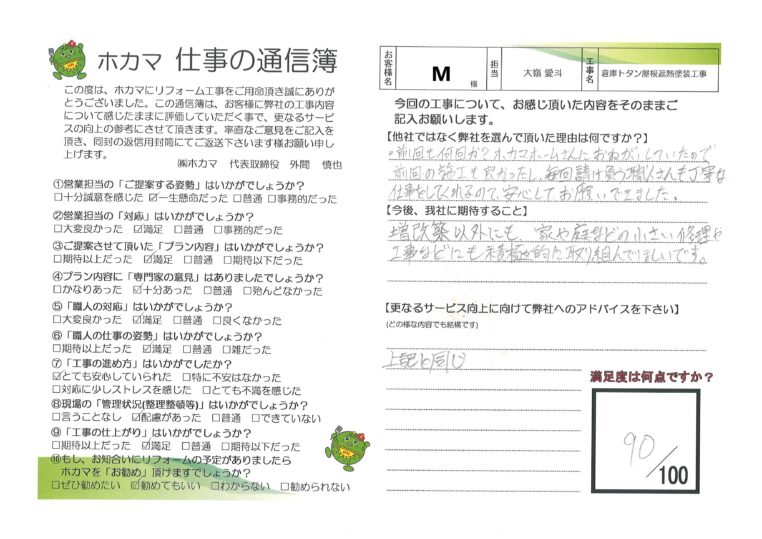 ホカマ 仕事の通信簿
この度は、ホカマにリフォーム工事をご用命頂き誠にありが
とうございました。この通信簿は、お客様に弊社の工事内容
について感じたままに評価していただく事で、更なるサービ
スの向上の参考にさせて頂きます。率直なご意見をご記入を
頂き、同封の返信用封筒にてご返送下さいます様お願い申し
上げます。
㈱ホカマ 代表取締役 外間 慎也
①営業担当の「ご提案する姿勢」はいかがでしょうか?
□十分誠意を感じた ☑一生懸命だった □普通 □事務的だった
②営業担当の「対応」はいかがでしょうか?
□大変良かった ☑満足 □普通 □事務的だった
③ご提案させて頂いた「プラン内容」はいかがでしょうか?
□期待以上だった ☑満足 □普通 □期待以下だった
④プラン内容に「専門家の意見」はありましたでしょうか?
□かなりあった ☑十分あった □普通 □殆んどなかった
⑤「職人の対応」はいかがでしょうか?
□大変良かった ☑満足 □普通 □良くなかった
⑥「職人の仕事の姿勢」はいかがでしょうか?
□期待以上だった ☑満足 □普通 □雑だった
⑦「工事の進め方」はいかがでしたか?
☑とても安心していられた □特に不安はなかった
□対応に少しストレスを感じた □とても不満を感じた
⑧現場の「管理状況(整理整頓等)」はいかがでしょうか?
□言うことなし ☑配慮があった □普通 □できていない
⑨「工事の仕上がり」はいかがでしょうか?
□期待以上だった ☑満足 □普通 □期待以下だった
⑩もし、お知合いにリフォームの予定がありましたら
ホカマを「お勧め」頂けますでしょうか?
□ぜひ勧めたい ☑勧めてもいい □わからない □勧められない
お客様名 M 様 担当 大嶺 愛斗 工事名 倉庫トタン屋根遮熱塗装工事
今回の工事について、お感じ頂いた内容をそのままご
記入お願いします。
【他社ではなく弊社を選んで頂いた理由は何ですか?】
前回も何回か?ホカマホームさんにおねがいしていたので
前回の施工も良かったし、毎回請け負う職人さんも丁寧な
仕事をしてくれるので、安心してお願いできました。
【今後、我社に期待すること】
増改築以外にも、家や庭などの小さい修理や
工事などにも積極的に取り組んでほしいです。
【更なるサービス向上に向けて弊社へのアドバイスを下さい】
(どの様な内容でも結構です)
上記と同じ
満足度は何点ですか?
90/100